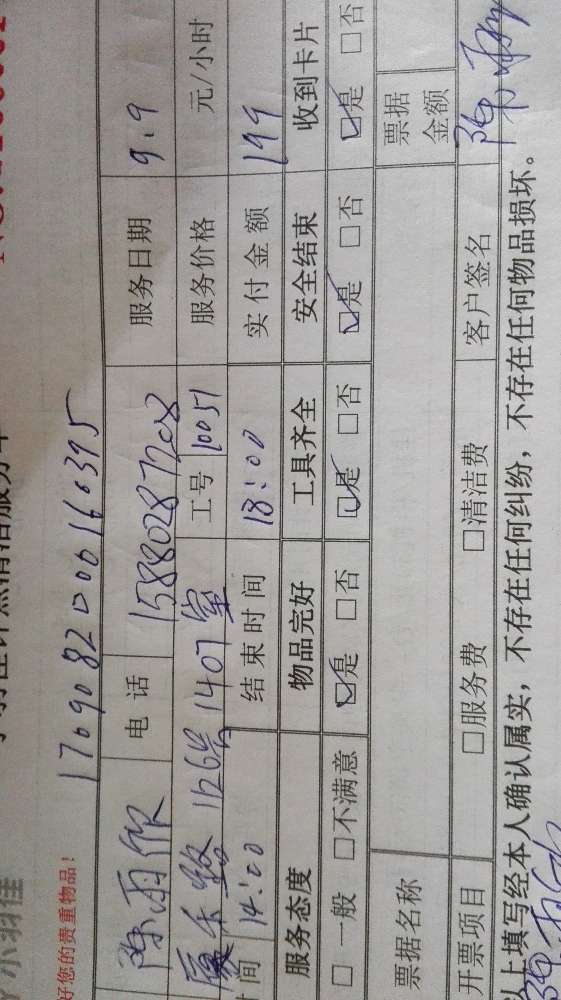 好您的贵重物品！
1709082000160395
陈雨欣 电话 15880287208 服务日期 9.9
厦禾路 1268号 1407室 工号 10051 服务价格 元/小时
时间 14:00 结束时间 18:00 实付金额 199
服务态度 物品完好 工具齐全 安全结束 收到卡片
□一般 □不满意 ☑是 □否 ☑是 □否 ☑是 □否 ☑是 □否
票据名称 票据金额
开票项目 □服务费 □清洁费 客户签名
以上填写经本人确认属实，不存在任何纠纷，不存在任何物品损坏。